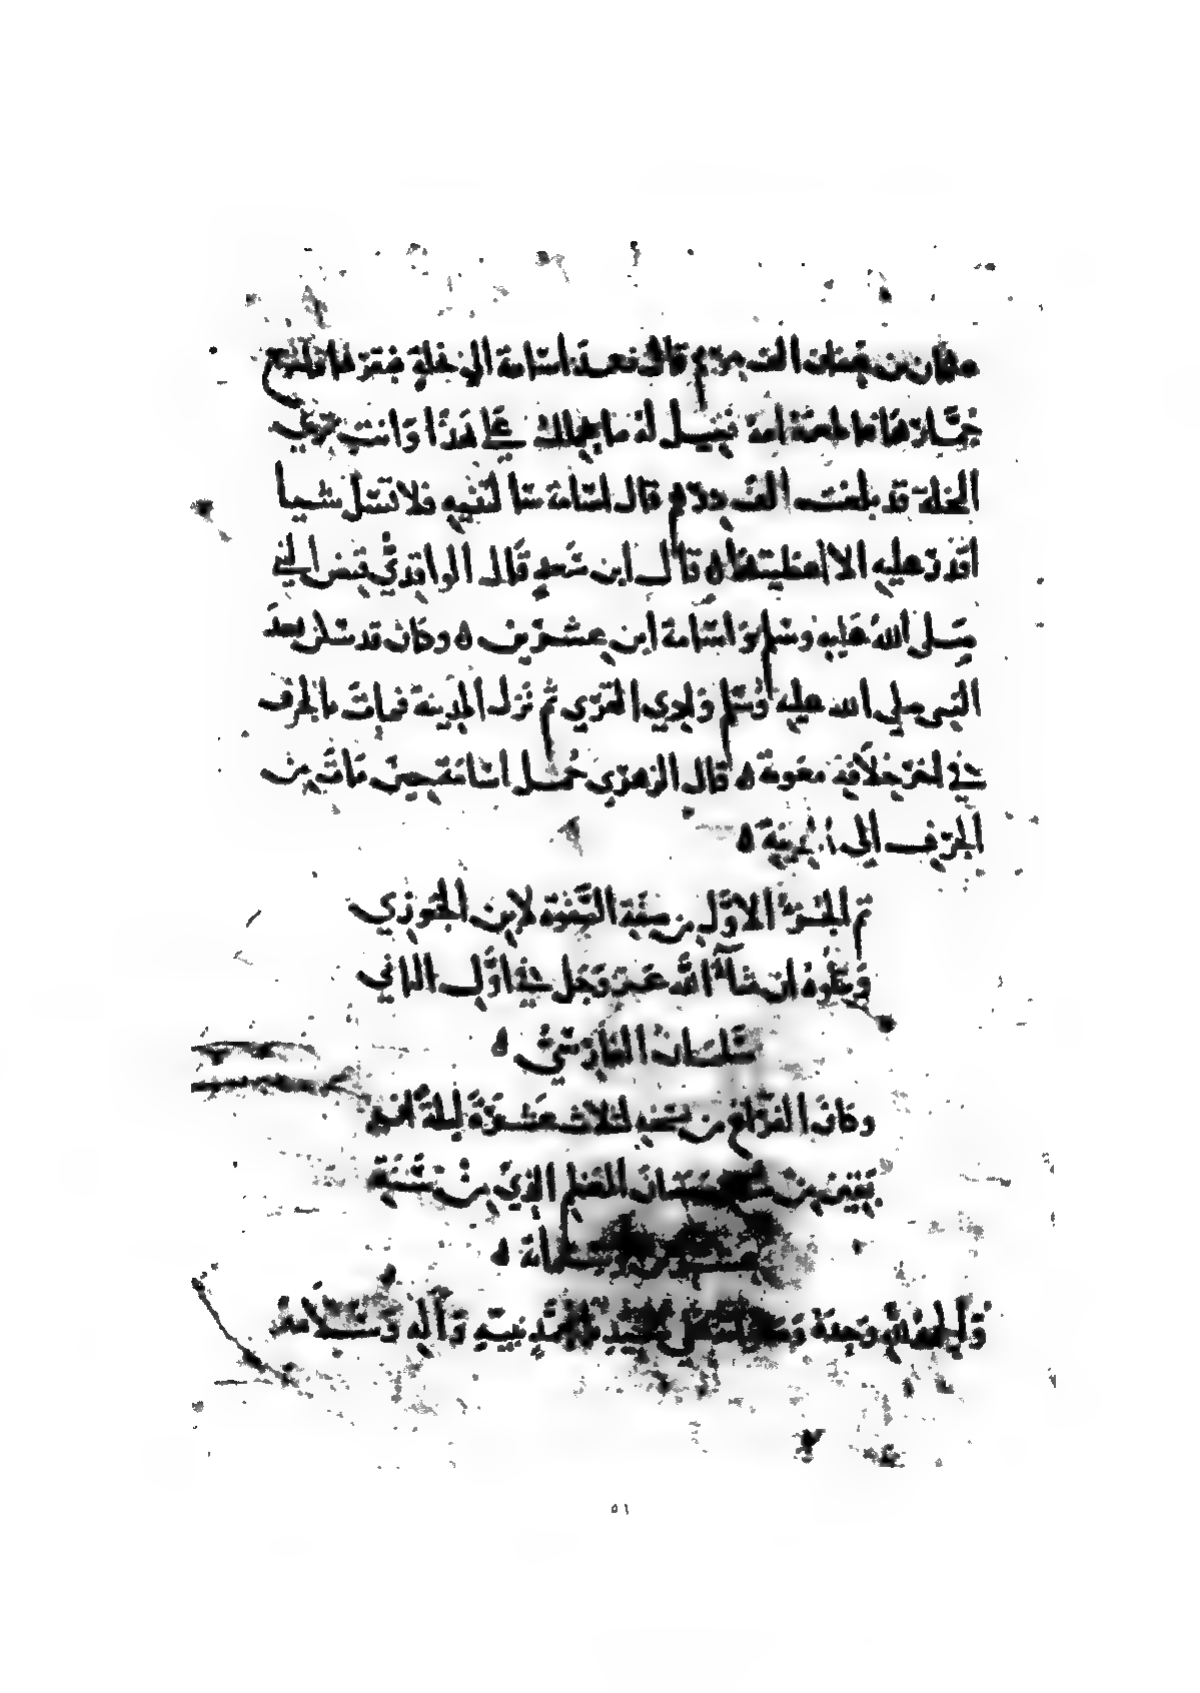 عثمان بن عفان الف درهم قال فعمد اسامة الى نخلة فنقرها فاخرج
جمارها فاطعمه امه فقيل له ما يحملك على هذا وانت ترى
النخلة قد بلغت الف درهم قال ان امى سالتنيه ولا تسل شيا
اقدر عليه الا اعطيتها ه قال ابن سعد قال الواقدي قبض النبي
صلى الله عليه وسلم واسامة ابن عشرين ه وكان قد سكن بعد
النبي صلي الله عليه وسلم وادي القرى ثم نزل المدينة فمات بالجرف
في اخر خلافة معوية ه قال الزهري حمل اسامة حين مات من
الجرف الى المدينة ه
تم الجزء الاول من صفة الصفوة لابن الجوزي
ويتلوه ان شاء الله عز وجل في اول الثاني
سلمان الفارسي ه
وكان الفراغ من نسخه لثلاث عشرة ليلة
بقين من المعظم الذي من سنة
ه
والحمد لله وحده محمد نبيه وآله وسلامه
٥١